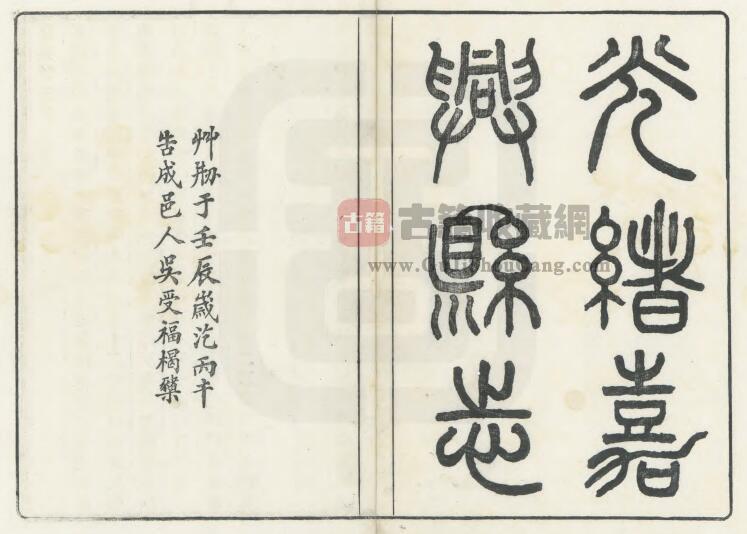 光緒嘉
興縣志
艸刱于壬辰歲汔丙午
告成邑人吳受福楬櫫
古籍 古籍收藏網
www.GujiShouCang.com